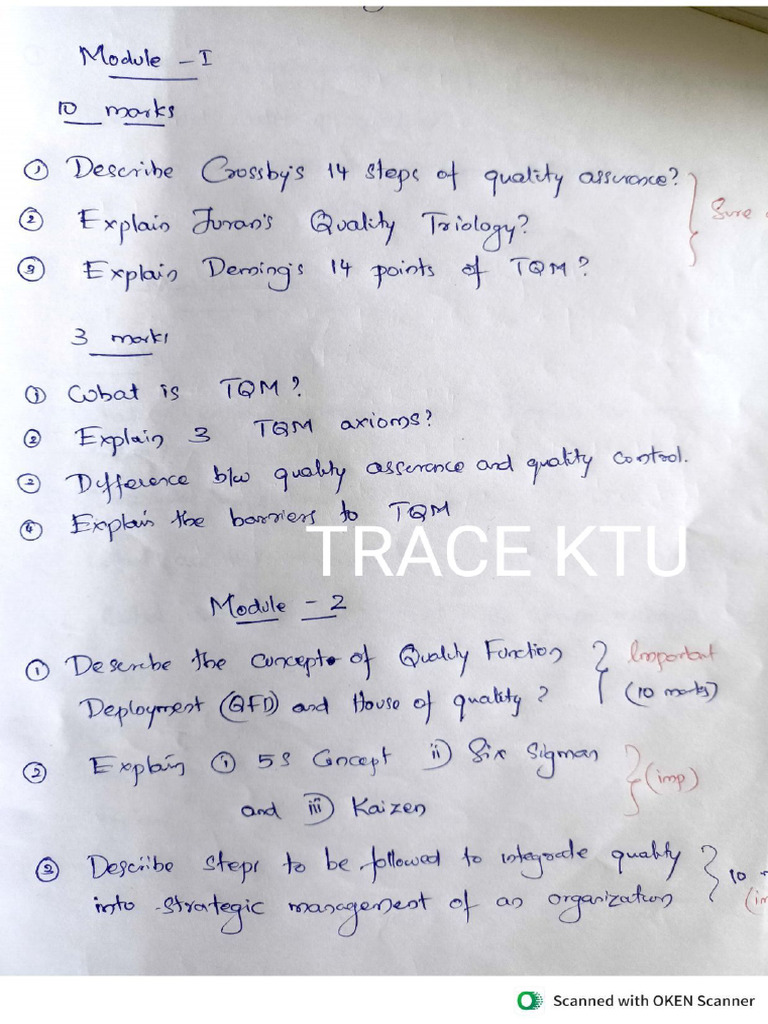 Module - I
10 marks
① Describe Crossby's 14 steps of quality assurance?
Sure
② Explain Juran's Quality Triology?
③ Explain Deming's 14 points of TQM?
3 marks
① What is TQM?
② Explain 3 TQM axioms?
③ Difference b/w quality asserance and quality control.
④ Explain the barriers to TQM
TRACE KTU
Module - 2
① Describe the concept of Quality Function
Important
Deployment (QFD) and House of quality?
(10 marks)
② Explain ① 5S Concept ii) Six Sigman
(imp)
and iii) Kaizen
③ Describe steps to be followed to integrate quality
10
into strategic management of an organization
Scanned with OKEN Scanner